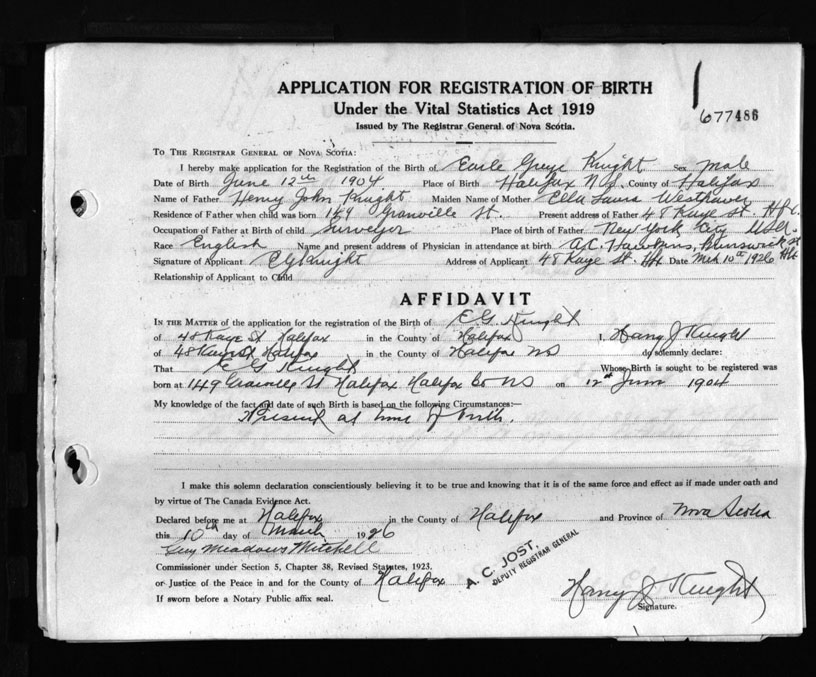 APPLICATION FOR REGISTRATION OF BIRTH
Under the Vital Statistics Act 1919
Issued by The Registrar General of Nova Scotia.
677486
TO THE REGISTRAR GENERAL OF NOVA SCOTIA:
I hereby make application for the Registration of the Birth of Earle Greye Knight Sex Male
Date of Birth June 12th 1904 Place of Birth Halifax N.S. County of Halifax
Name of Father Henry John Knight Maiden Name of Mother Ella Laura Westhaver
Residence of Father when child was born 149 Granville St. Present address of Father 48 Kaye St. Hfx.
Occupation of Father at Birth of child Surveyor Place of birth of Father New York City USA.
Race English Name and present address of Physician in attendance at birth A.C. Hawkins, Brunswick St Hfx
Signature of Applicant EG Knight Address of Applicant 48 Kaye St. Hfx Date Mch 10th 1926
Relationship of Applicant to Child
AFFIDAVIT
IN THE MATTER of the application for the registration of the Birth of E G Knight
of 48 Kaye St Halifax in the County of Halifax I, Harry J Knight
of 48 Kaye St Halifax in the County of Halifax NS do solemnly declare:
That E G Knight Whose Birth is sought to be registered was
born at 149 Granville St Halifax Halifax Co NS on 12th June 1904
My knowledge of the fact and date of such Birth is based on the following Circumstances:—
Present at time of birth.
I make this solemn declaration conscientiously believing it to be true and knowing that it is of the same force and effect as if made under oath and
by virtue of The Canada Evidence Act.
Declared before me at Halifax in the County of Halifax and Province of Nova Scotia
this 10th day of March 1926
Guy Meadows Mitchell
Commissioner under Section 5, Chapter 38, Revised Statutes, 1923.
or Justice of the Peace in and for the County of Halifax
A. C. JOST,
DEPUTY REGISTRAR GENERAL
If sworn before a Notary Public affix seal.
Harry J Knight
Signature.